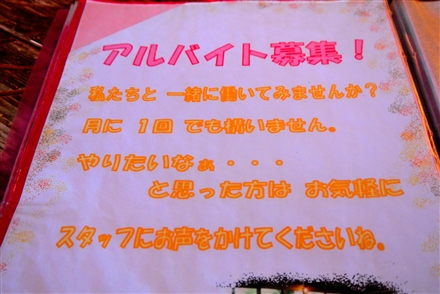 アルバイト募集！
私たちと 一緒に働いてみませんか？
月に 1回 でも構いません。
やりたいなぁ・・・
と思った方は お気軽に
スタッフにお声をかけてくださいね。